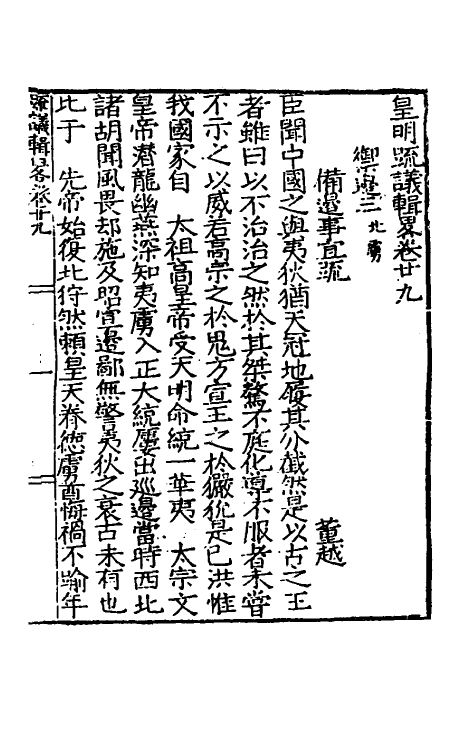 皇明疏議輯畧卷廿九
禦邊三 北虜
備邊事宜疏 董越
臣聞中國之與夷狄猶天冠地履其分截然是以古之王
者雖曰以不治治之然於其桀驁不庭化導不服者未嘗
不示之以威若高宗之於鬼方宣王之於玁狁是已洪惟
我國家自 太祖高皇帝受天明命統一華夷 太宗文
皇帝潛龍幽燕深知夷虜入正大統屢出巡邊當時西北
諸胡聞風畏却施及昭宣邊鄙無警夷狄之衰古未有也
比于 先帝始復北狩然賴皇天眷德虜酋悔禍不踰年
疏議輯畧卷廿九 一